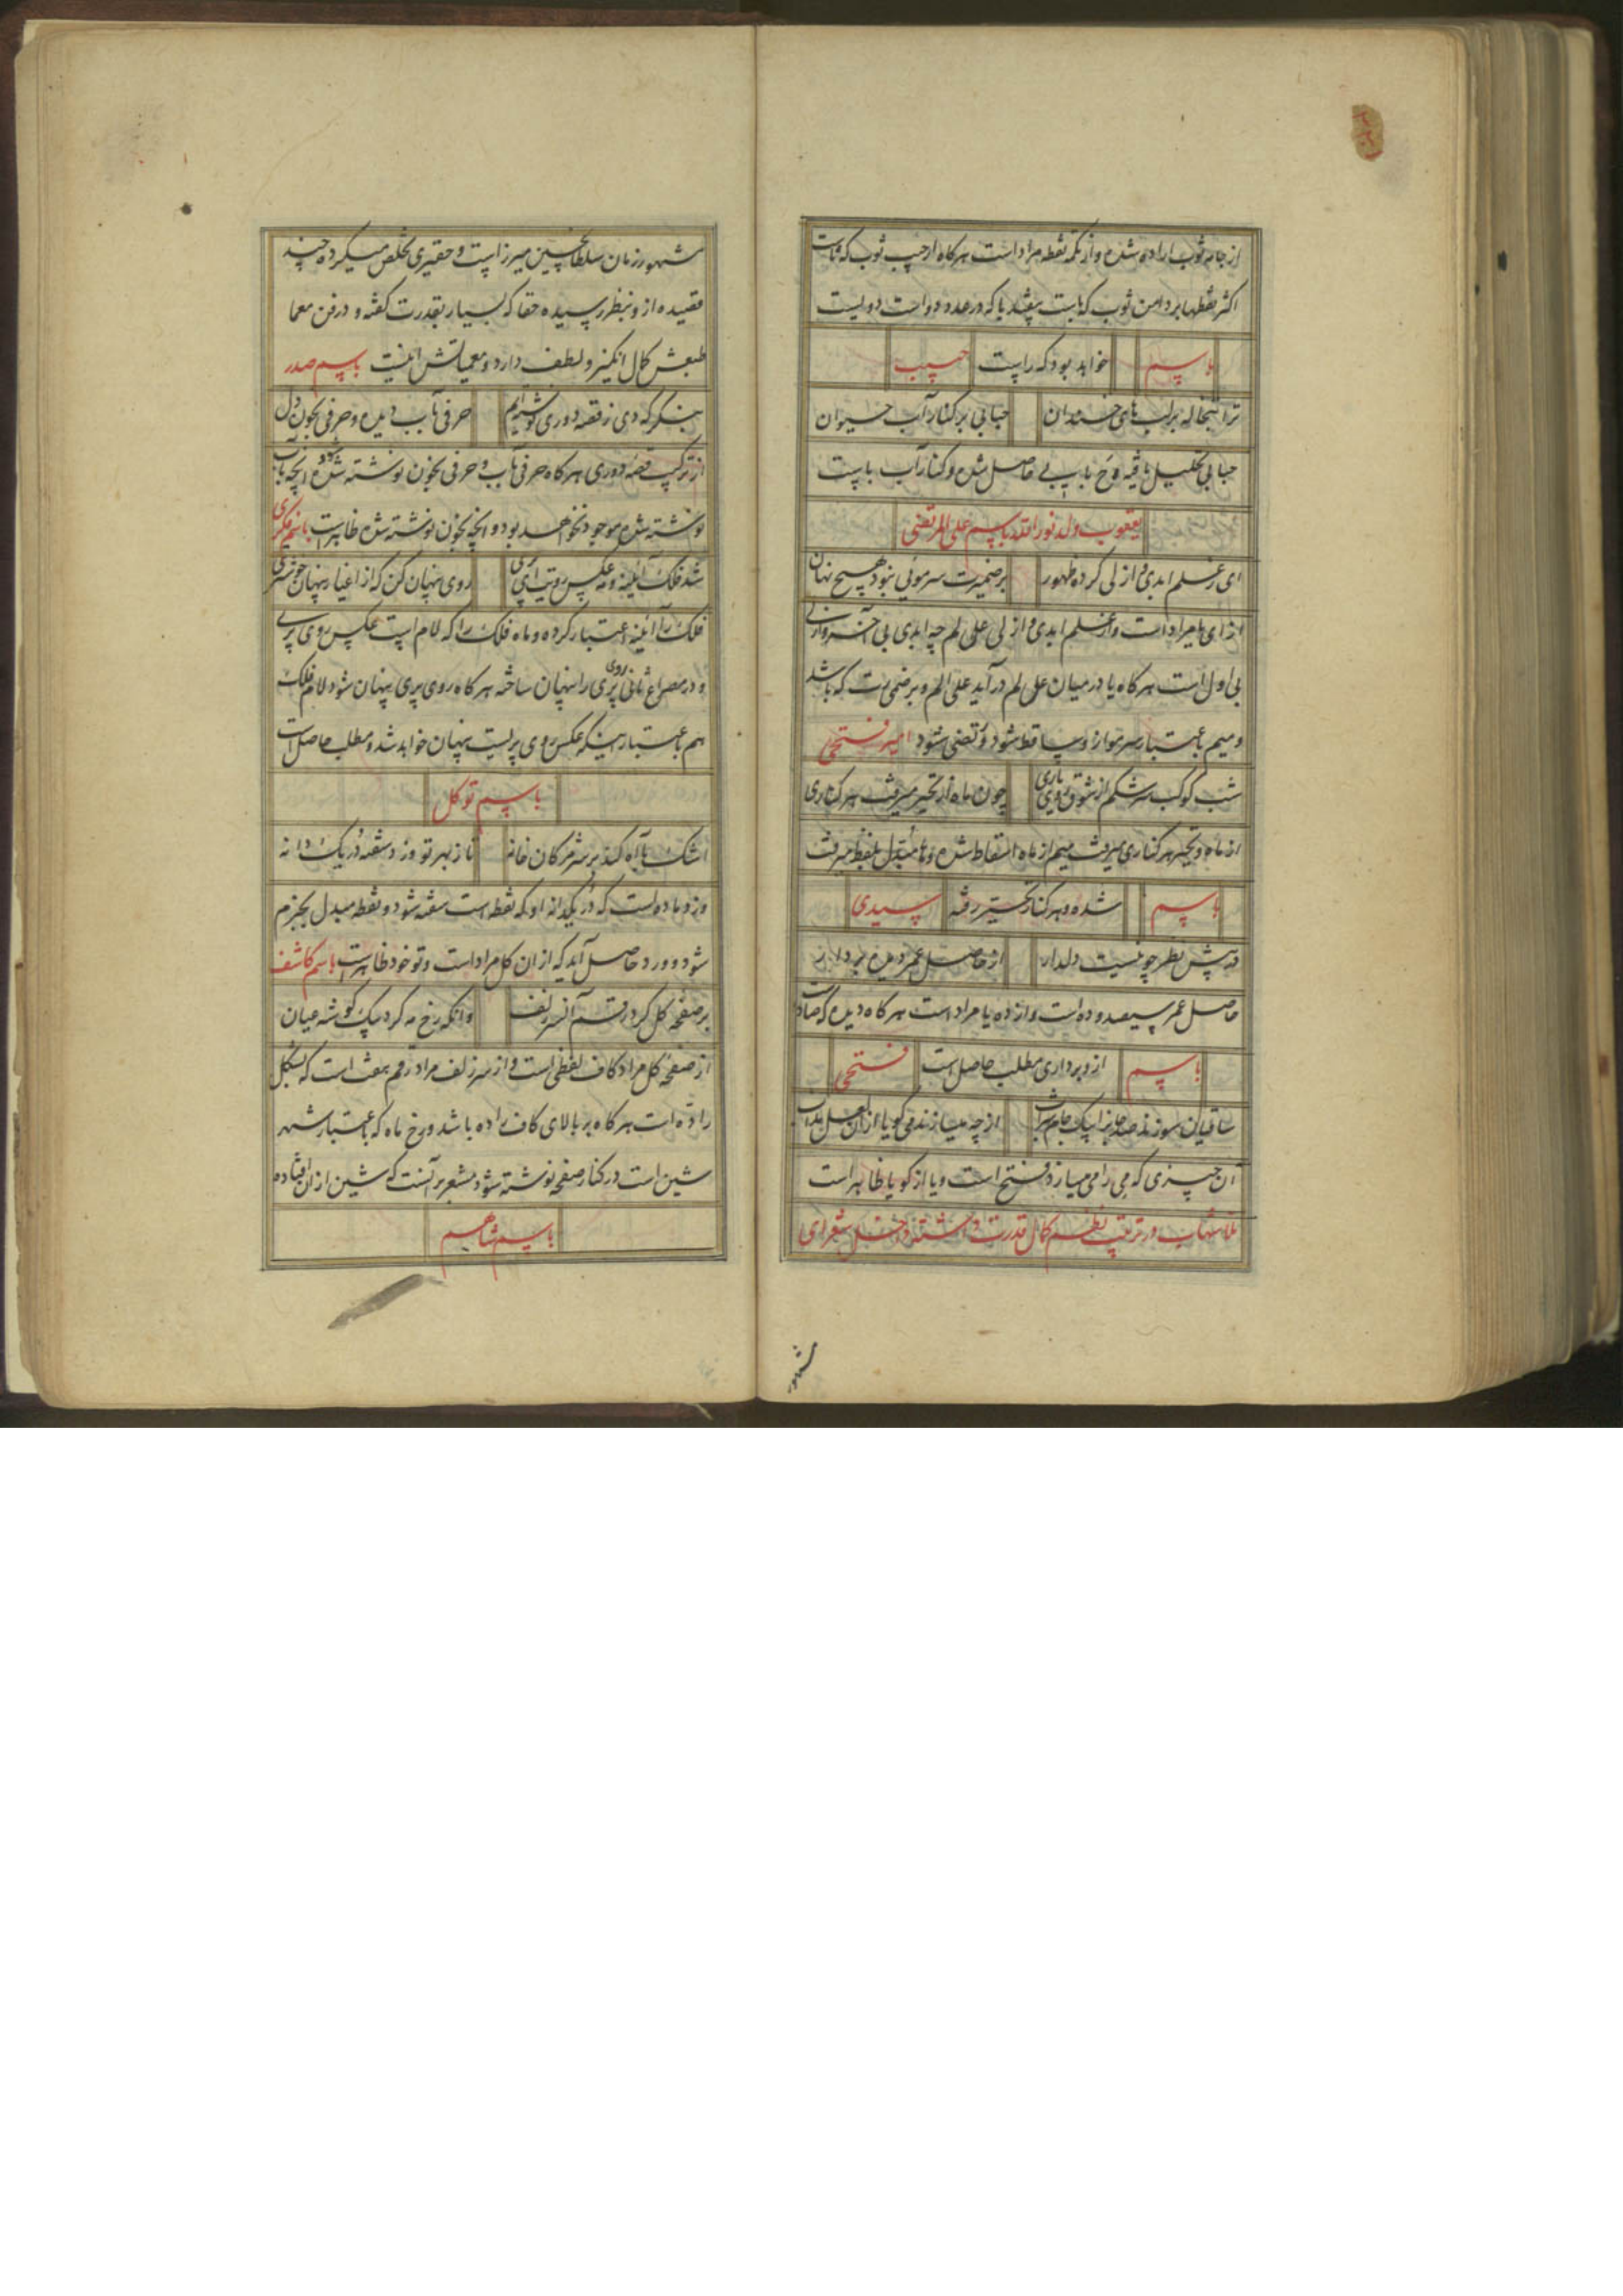 از جامه ثوب اراده شده و از تکمه نقطه مراد است هرگاه از جیب ثوب که ثاست
اکثر نقطها بر دامن ثوب که باست بیفتد با که در عدد دو است دولیست
باسم خواهد بود که راپست حبیب
ترا تبخاله بر لب های خندان حبابی بر کنار آب حیوان
حبابی بتحلیل یافته و ح با بی حاصل شده و کنار آب باپست
یعقوب ولد نور الله باسم علی المرتضی
ای ز علم ابدی و از لی کرده ظهور بر ضمیرت سر موئی نبود هیچ نهان
از ای یا مراد است و از علم ابدی و ازلی علی لم چه ابدی بی آخر و ازلی
بی اول است هرگاه یا در میان علی لم در آید علی الم و بر ضمیرت که باشد
و میم باعتبار سر مو از و ساقط شود و تضی شود امیر فتحی
شب کوکب سرشکم از شوق روی یاری چون ماه از تحیر میرفت هر کناری
از ماه و تحیر هر کناری میرفت میم از ماه اسقاط شده و تا مبدل بلفظ میرفت
باسم شده و هر کنار تحیر رفته سیدی
ده پیش نظر چو نیست دلدار از حاصل عمر دیده بردار
حاصل عمر سیصد و ده است و از ده یا مراد است هرگاه دیده که صاد است
باسم ازو برداری مطلب حاصل است فتحی
ساقیان سوزند صد جانرا بیک جام شراب از چه میسازند می گویا از آن لعل مذاب
آن چیزی که می را می میسازد فتح است و یا از گویا ظاهر است
ملا شهاب در ترتیب نظم کمال قدرت داشته داخل شعرای
مشهور
مشهور زمان سلطان حسین میرزاست و حقیری تخلص میکرده چند
قصیده ازو بنظر رسیده حقا که بسیار بقدرت گفته و در فن معما
طبعش کمال انگیز و لطف دارد و معمیاتش اینست باسم صدر
بنگر که دی ز قصه دوری نوشته‌ایم حرفی بآب دیده و حرفی بخون دل
از ترکیب قصه دوری هرگاه حرفی بآب و حرفی بخون نوشته شود آنچه بآب
نوشته شده موجود نخواهد بود و آنچه بخون نوشته شده ظاهر است باسم فکری
شد فلک آئینه و مه عکس رویت ای پری روی پنهان کن که از اغیار پنهان خوشتری
فلک را آئینه اعتبار کرده و ماه فلک را که لام است عکس روی پری
و در مصراع ثانی روی پری را پنهان ساخته هرگاه روی پری پنهان شود لام فلک
هم باعتبار اینکه عکس روی پریست پنهان خواهد شد و مطلب حاصل است
باسم توکل
اشک با آه کند بر سر مژگان خانه تا ز بهر تو وزد سفته دُر یک دانه
وزد ماده است که دُر یکدانه او که نقطه است سفته شود و نقطه مبدل بجزم
شود و ورد حاصل آید که از آن کل مراد است و تو خود ظاهر است باسم کاشف
بر صفحه گل کرد رقم آن سر زلف وانگه رخ مه کرد بیک گوشه عیان
از صفحه گل مراد کاف لفظی است و از سر زلف مراد رقم هفت است که بشکل
راده است هرگاه بر بالای کاف راده باشد و رخ ماه که باعتبار شهر
شین است در کنار صفحه نوشته شود مشعر بر آنست که شین از آن افتاده
باسم شاهم